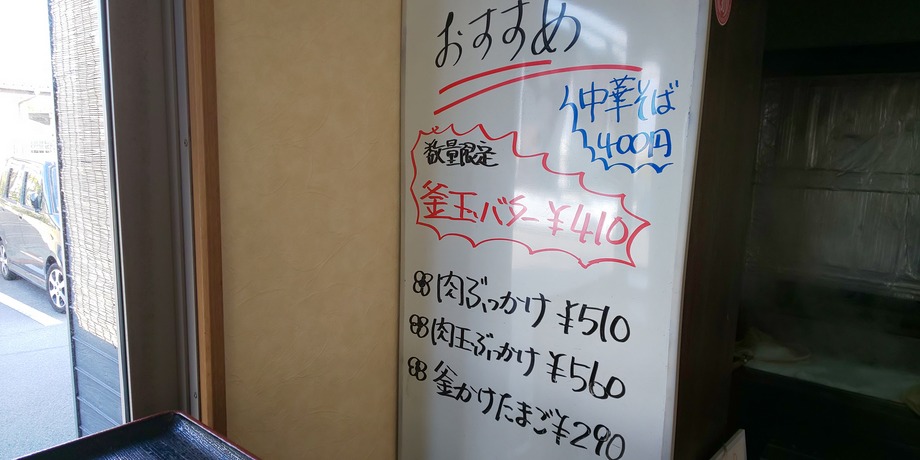 おすすめ
中華そば
400円
数量限定
釜玉バター ¥410
肉ぶっかけ ¥510
肉玉ぶっかけ ¥560
釜かけたまご ¥290